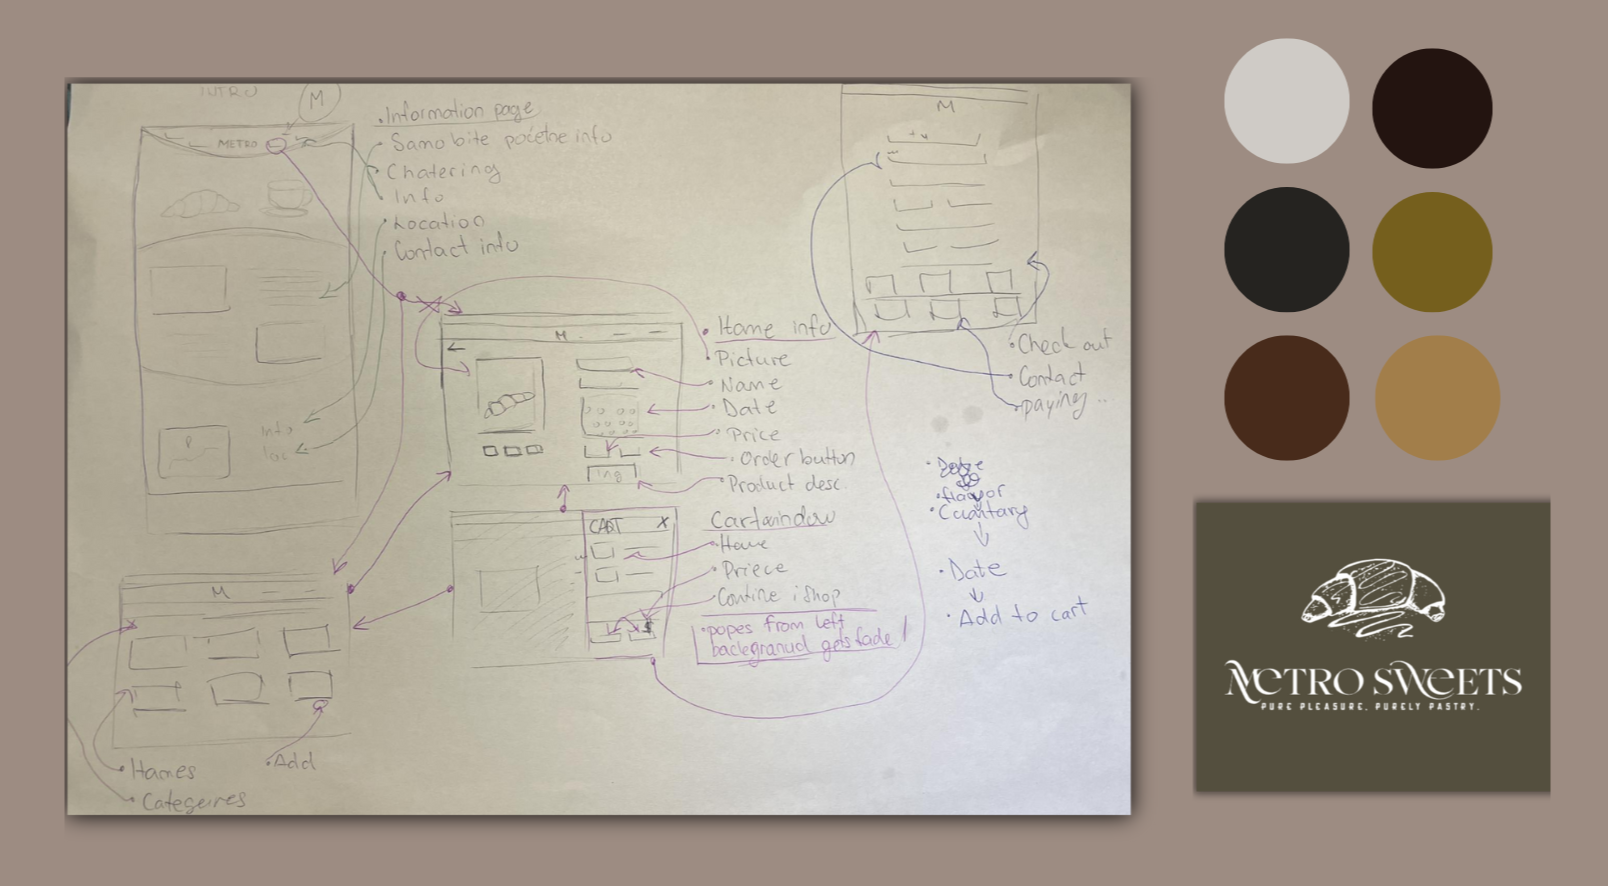 INTRO
M
METRO
. Information page
Samo bite početne info
Chatering
Info
Location
Contact info
Info
Loc
P
M
Home info
Picture
Name
Date
Price
Order button
Product desc.
M
CART X
$
Cartwindow
Home
Priece
Contine i Shop
popes from left
background gets fade
M
Check out
Contact
paying ..
flavor
Date
Add to cart
M
Names
Add
Categeires
METRO SWEETS
PURE PLEASURE. PURELY PASTRY.